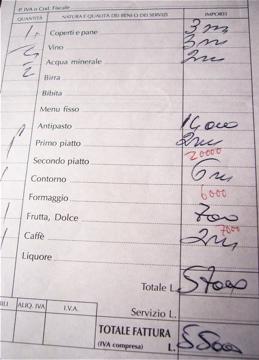 P. IVA o Cod. Fiscale
QUANTITÀ NATURA E QUALITÀ DEI BENI O DEI SERVIZI IMPORTI
Coperti e pane 3
Vino 3
2 Acqua minerale 2
Birra
Bibita
Menu fisso
Antipasto
Primo piatto 2
20000
Secondo piatto 6
Contorno
6000
Formaggio
Frutta, Dolce 7000
7000
Caffè 2
Liquore
Totale L. 57000
ALIQ. IVA I.V.A. Servizio L.
TOTALE FATTURA
(IVA compresa) L. 55000